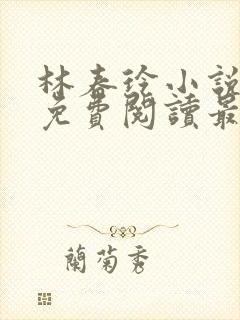 林春徐小說
免費閱讀最
蘭菊秀